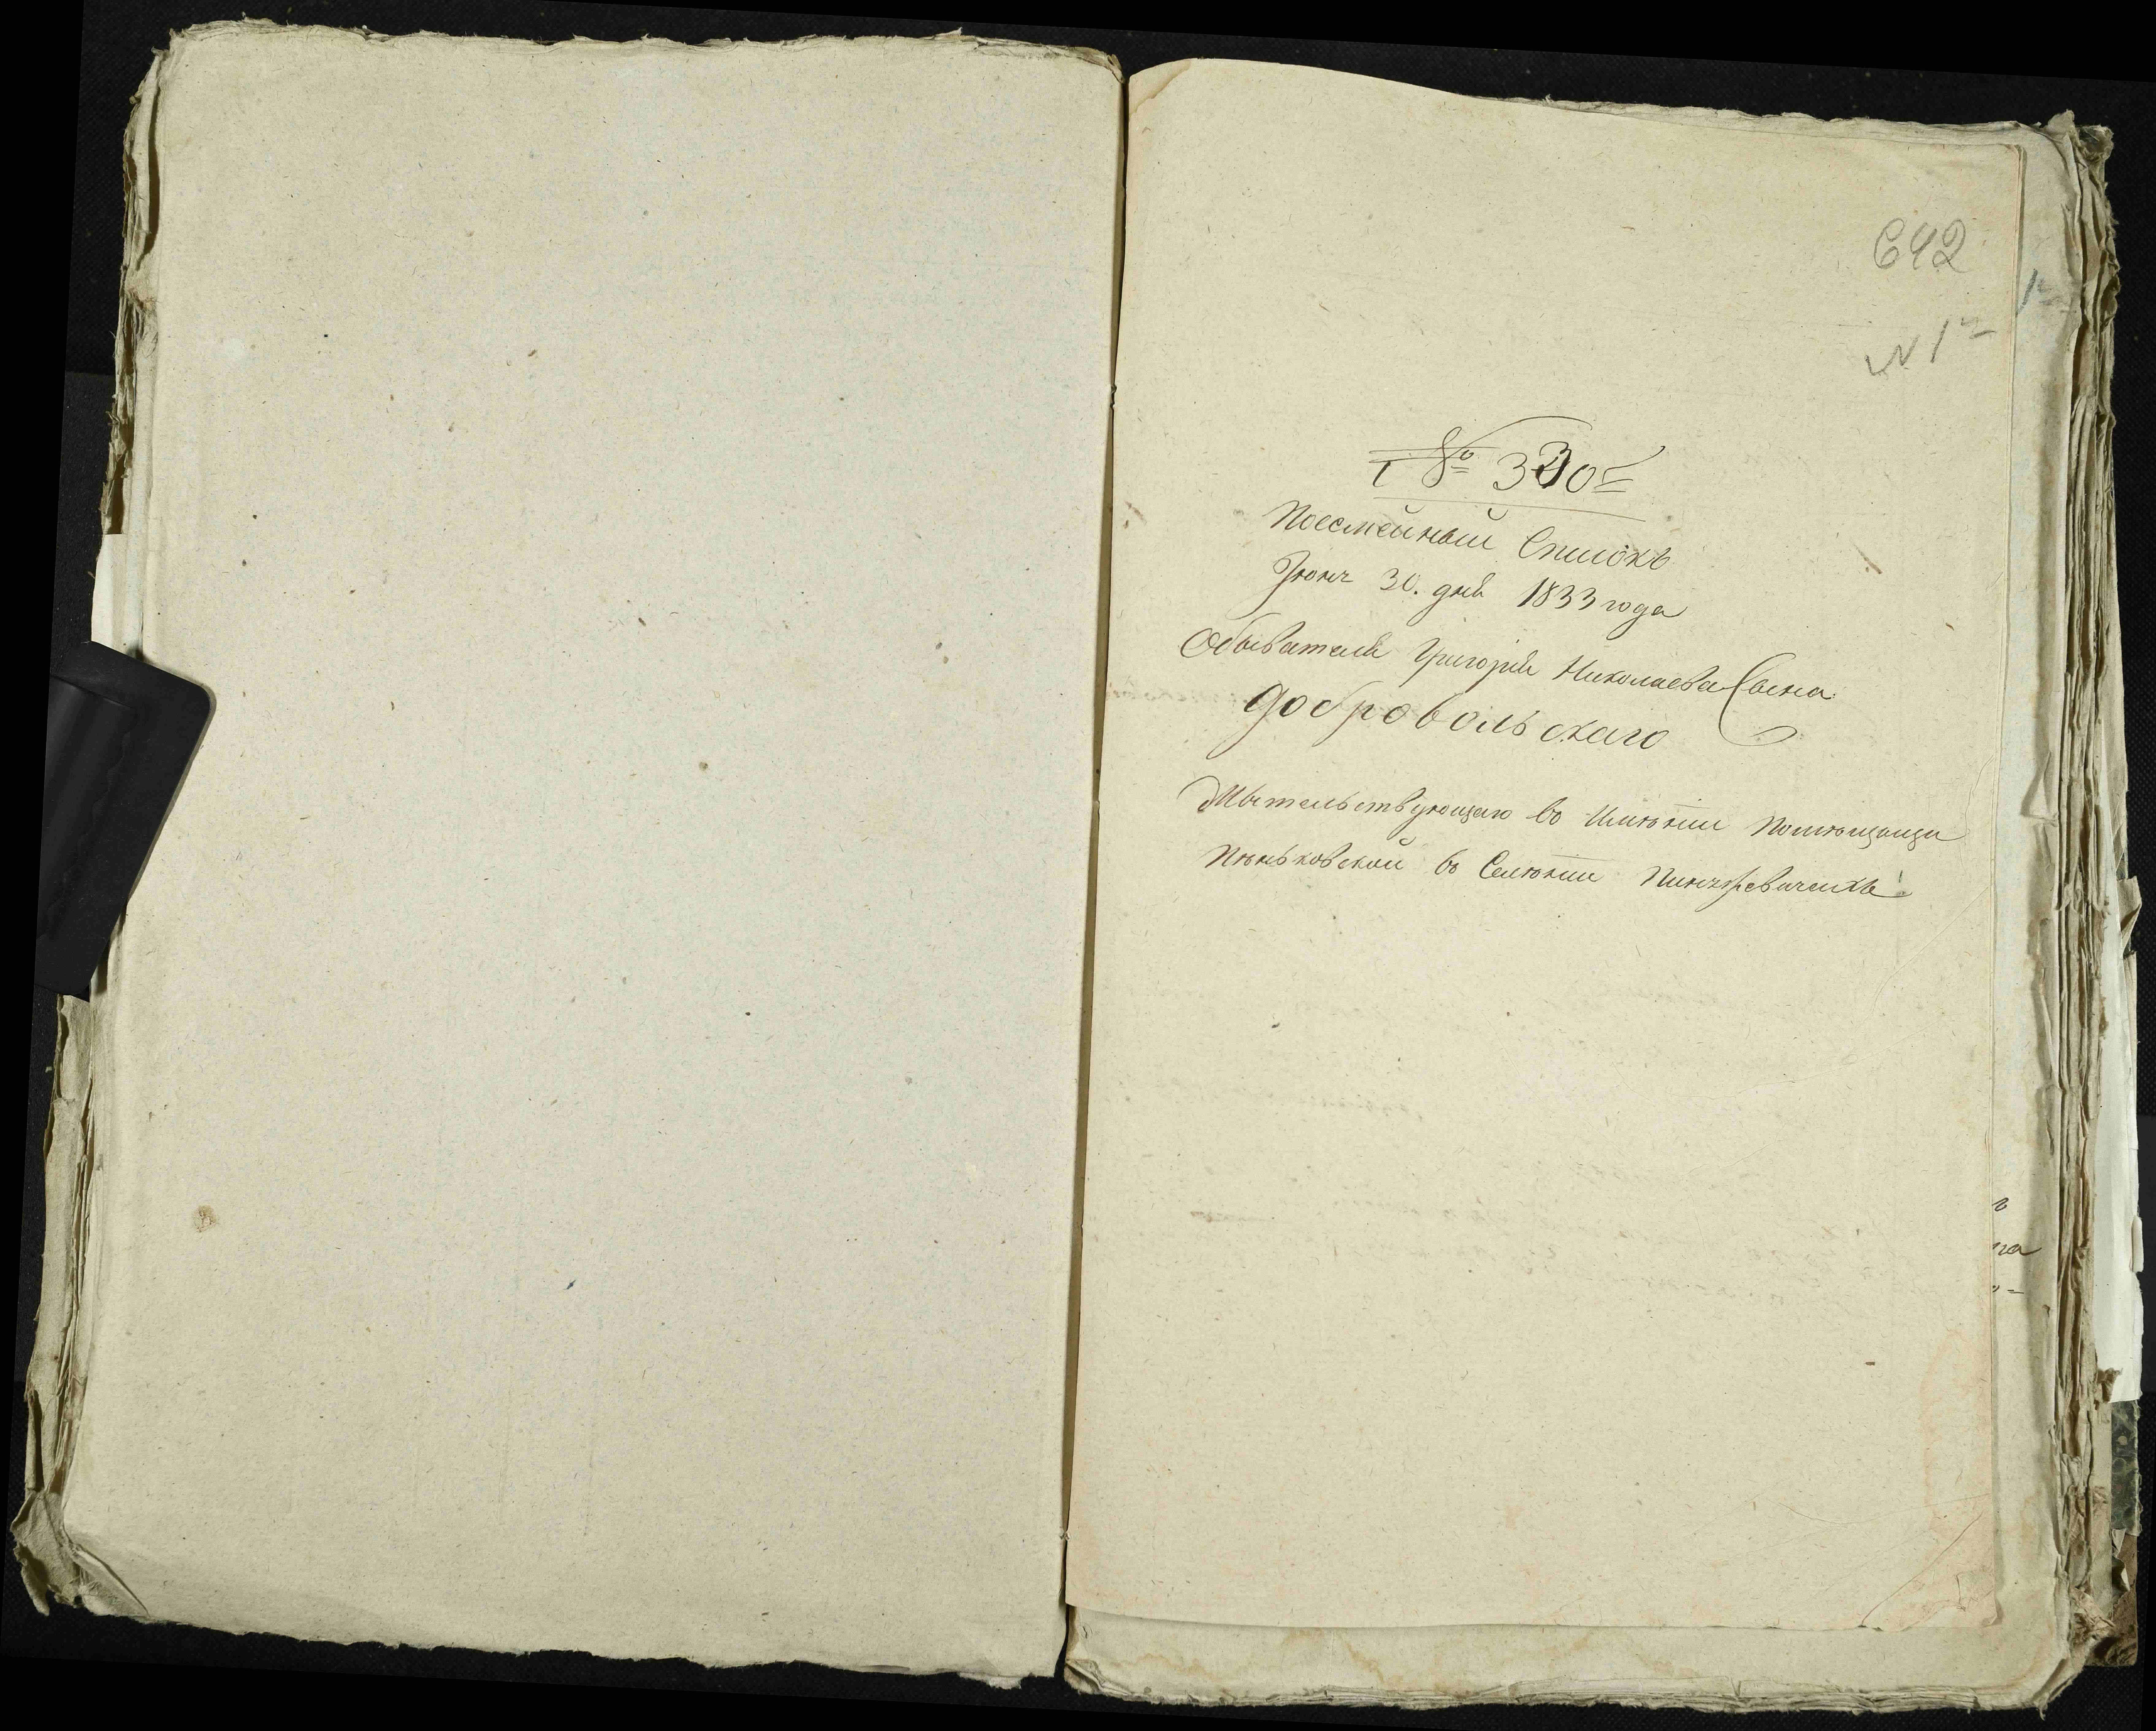 642
N 1
№ 330
Посемейный Списокъ
Іюня 30. дня 1833 года
Обывателя Григорія Николаева Сына
Добровольскаго
Жительствующаго во Имѣніи Помѣщицы
Пѣньковской въ Селѣніи
на